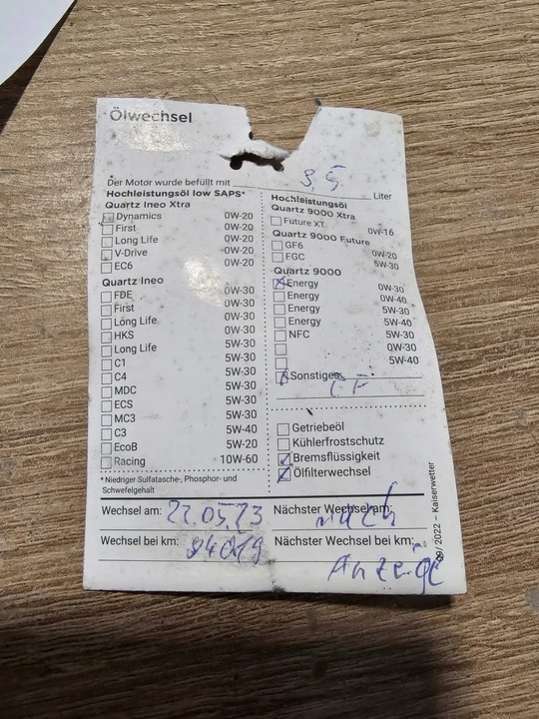 Ölwechsel
Der Motor wurde befüllt mit 3,5 Liter
Hochleistungsöl low SAPS*
Quartz Ineo Xtra
Dynamics 0W-20
First 0W-20
Long Life 0W-20
V-Drive 0W-20
EC6 0W-20
Quartz Ineo
FDE 0W-30
First 0W-30
Long Life 0W-30
HKS 0W-30
Long Life 5W-30
C1 5W-30
C4 5W-30
MDC 5W-30
ECS 5W-30
MC3 5W-30
C3 5W-40
EcoB 5W-20
Racing 10W-60
* Niedriger Sulfatasche-, Phosphor- und
Schwefelgehalt
Hochleistungsöl
Quartz 9000 Xtra
Future XT 0W-16
Quartz 9000 Future
GF6 0W-20
FGC 5W-30
Quartz 9000
Energy 0W-30
Energy 0W-40
Energy 5W-30
Energy 5W-40
NFC 5W-30
0W-30
5W-40
Sonstiges
Getriebeöl
Kühlerfrostschutz
Bremsflüssigkeit
Ölfilterwechsel
Wechsel am: 22.05.23 Nächster Wechsel am: nach
Wechsel bei km: Nächster Wechsel bei km:
Anzeige
09/2022 – Kaiserwetter